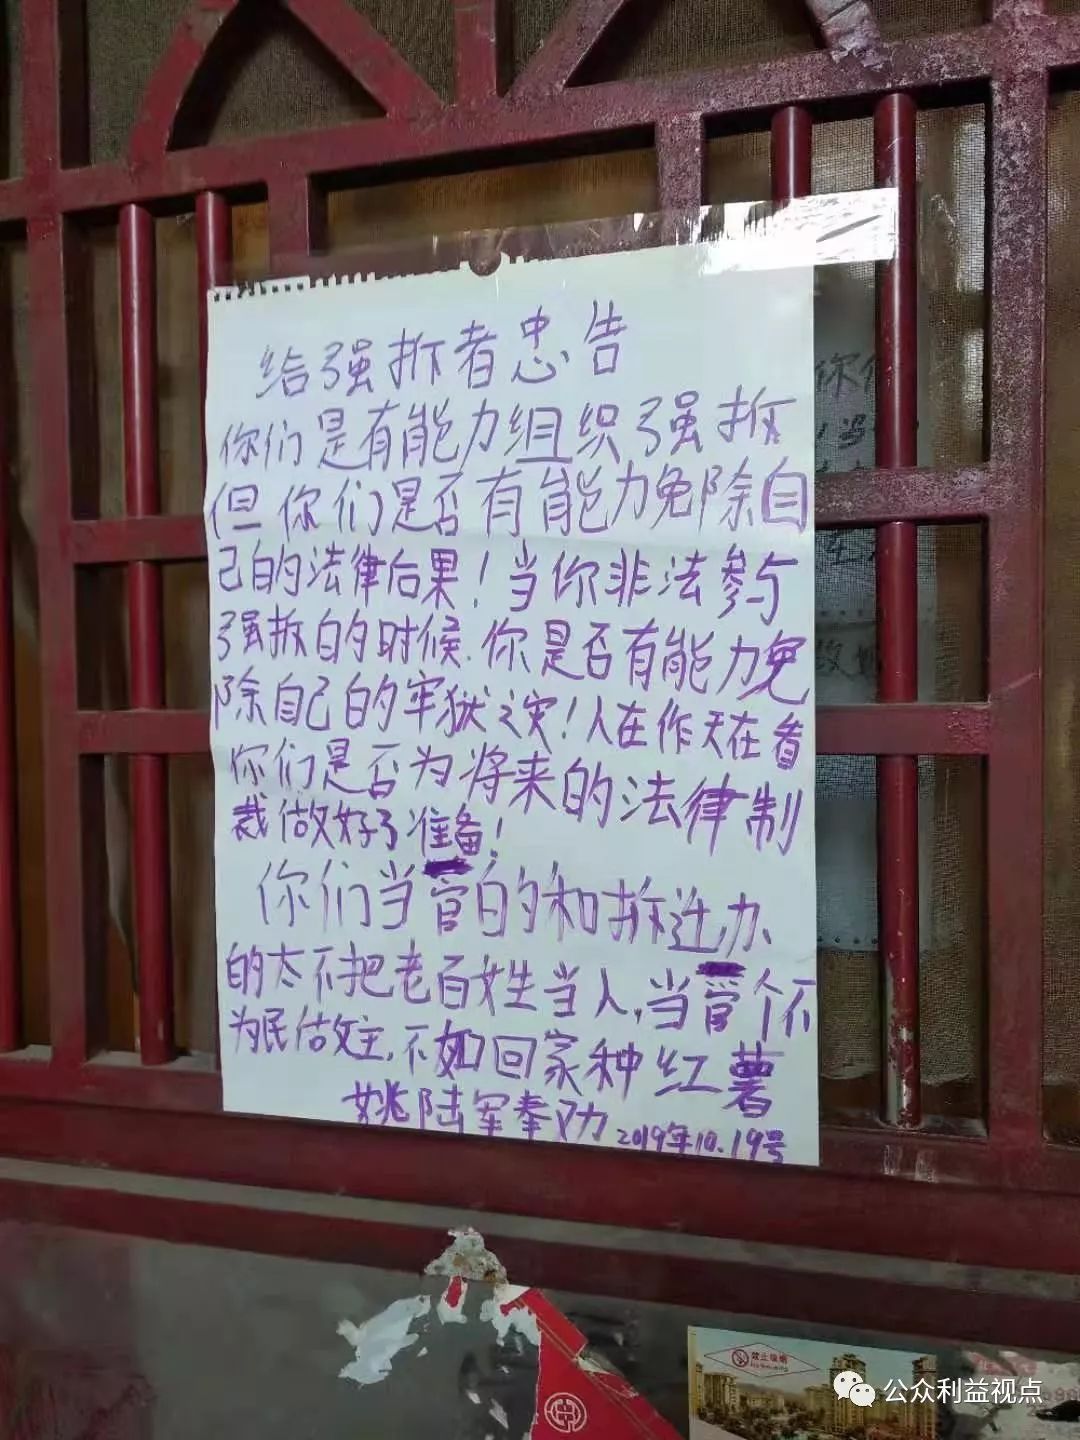 给强拆者忠告
你们是有能力组织强拆
但你们是否有能力免除自
己的法律后果！当你非法参与
强拆的时候.你是否有能力免
除自己的牢狱之灾！人在作天在看
你们是否为将来的法律制
裁做好了准备！
你们当官的和拆迁办
的太不把老百姓当人,当官个不
为民做主,不如回家种红薯
姚陆军奉劝 2019年10.19号
你们
禁止吸烟
公众利益视点